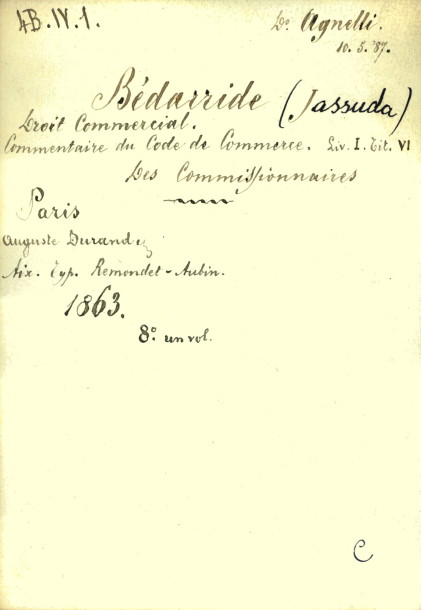 4B.IV.1.
Do Agnelli.
10.5.87.
Bédarride (Jassuda)
Droit Commercial.
Commentaire du Code de Commerce. Liv. I. Tit. VI
Des Commissionnaires
Paris
Auguste Durand
Aix. Typ. Remondet-Aubin.
1863.
8º un vol.
C